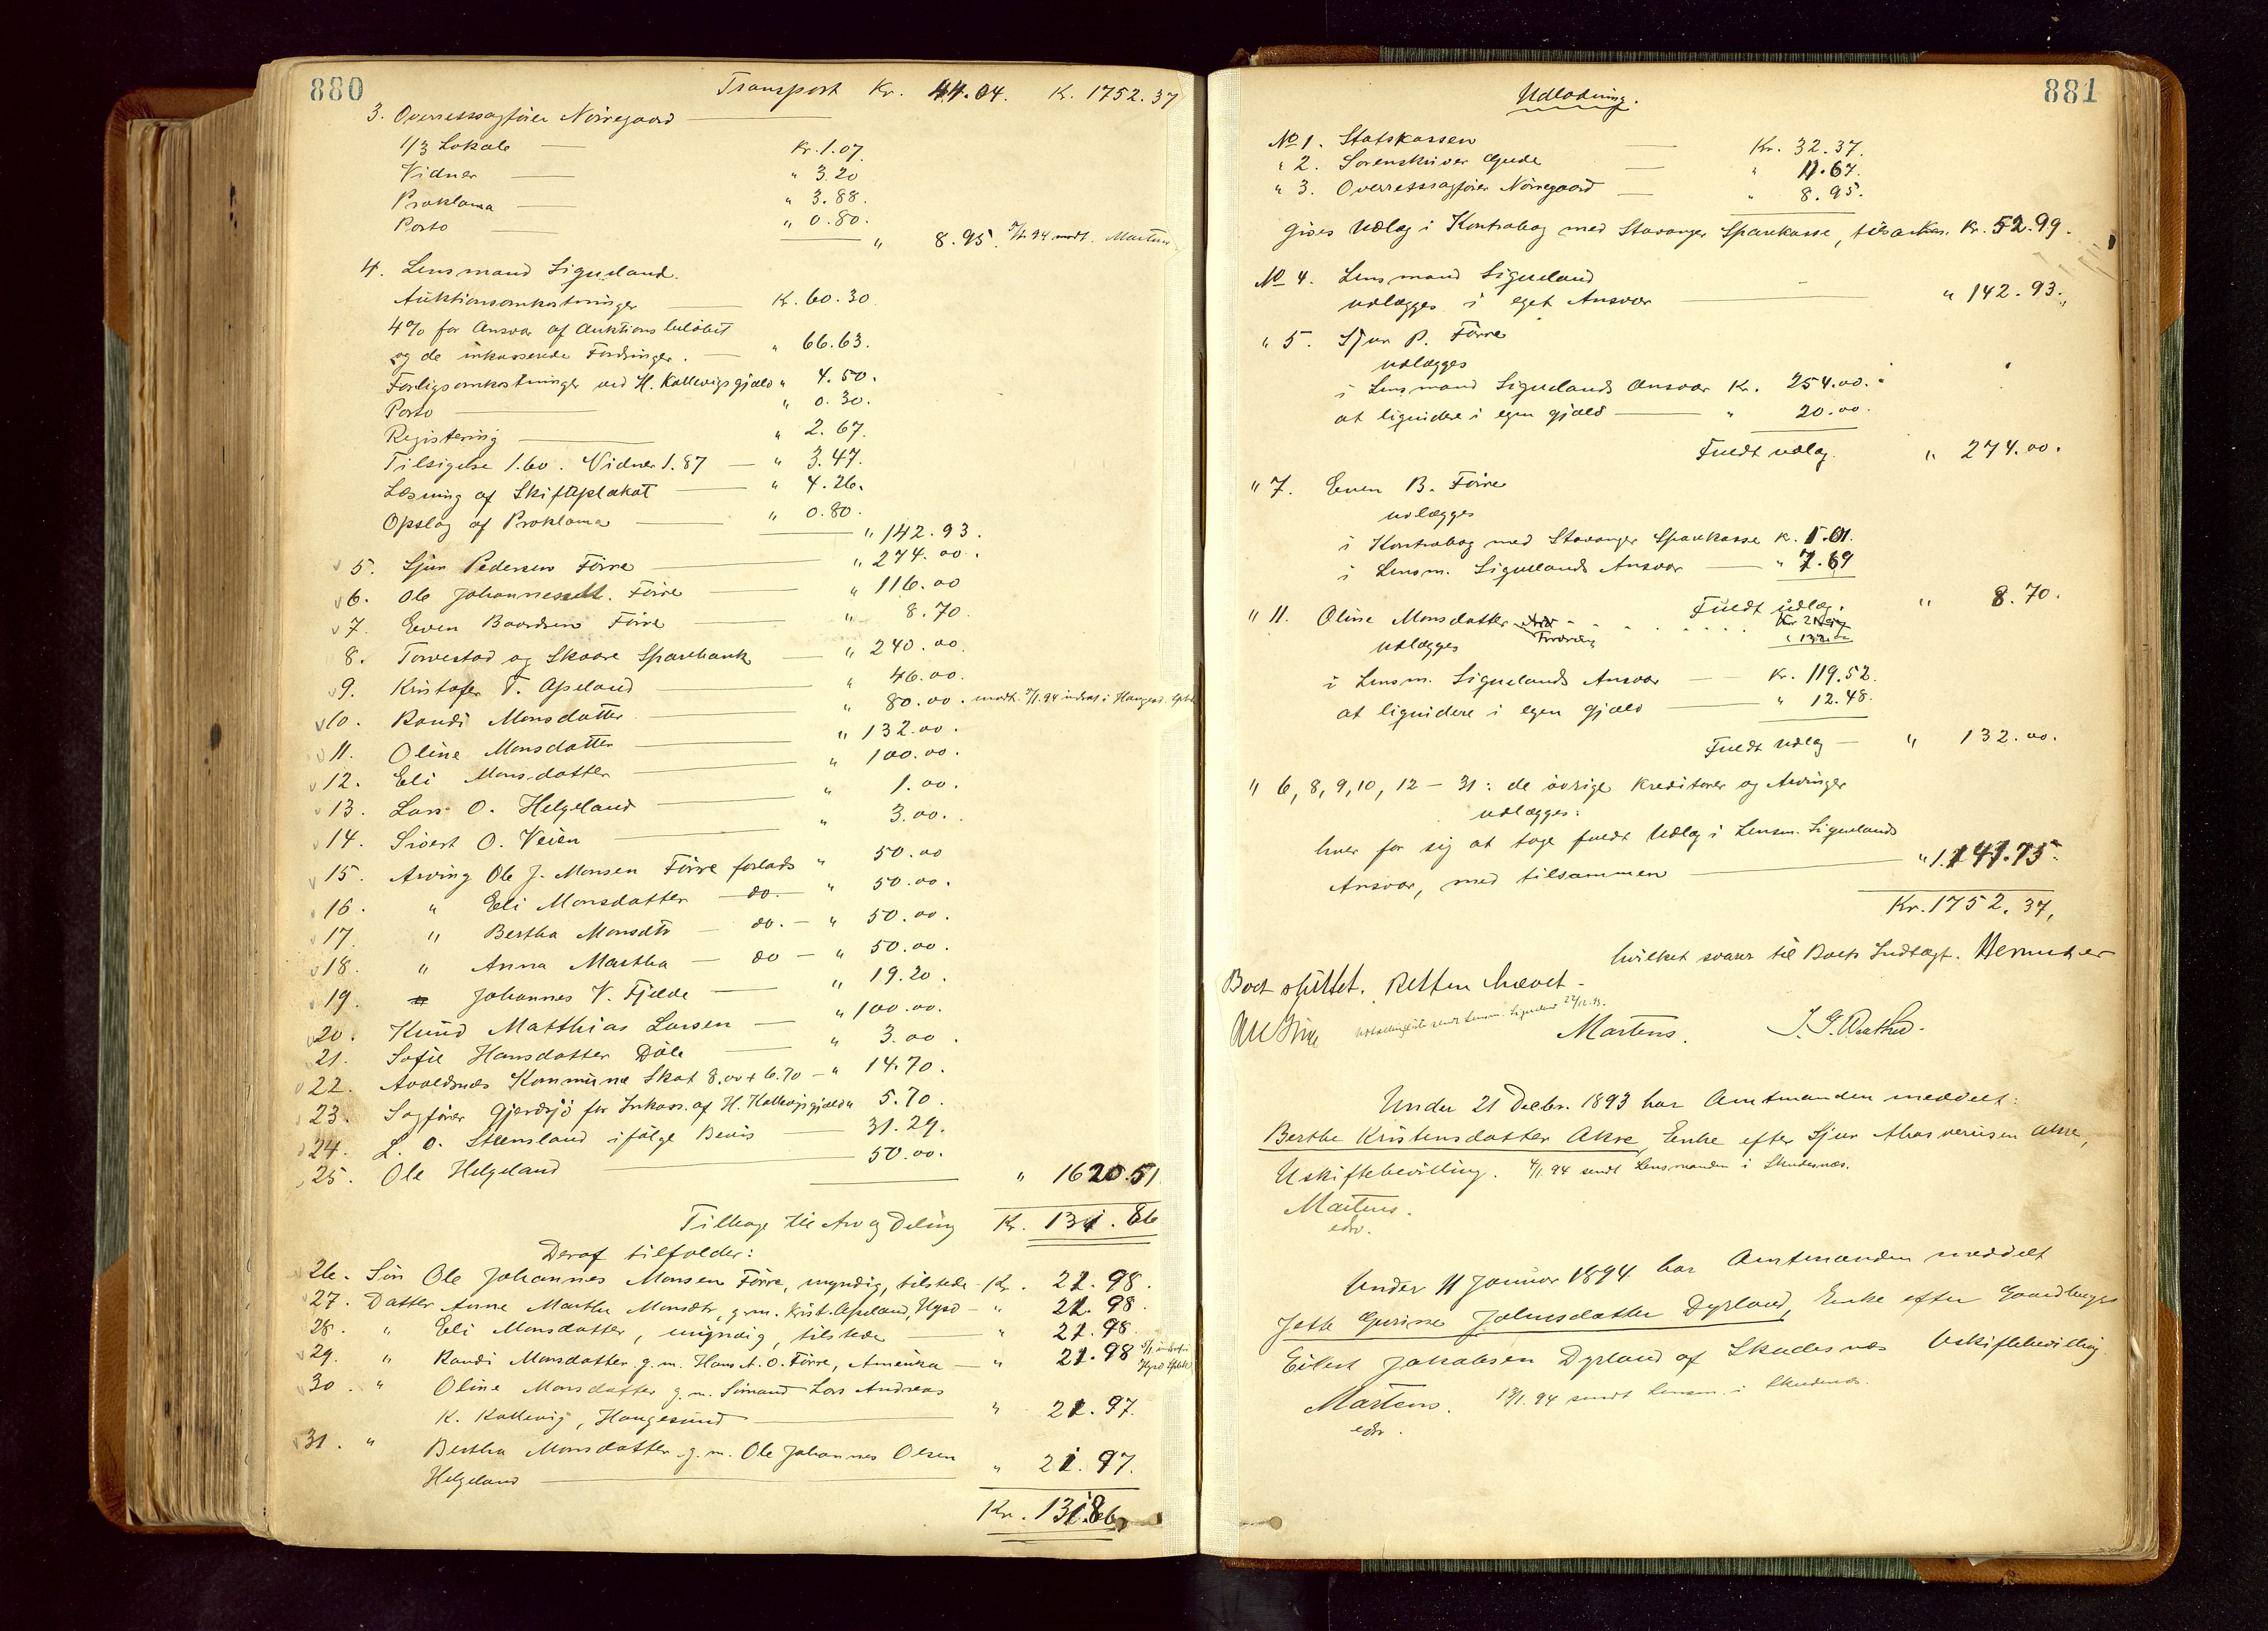 880
Transport Kr. 44.04. Kr. 1752.37
3. Overretssagfører Nørregaard
1/3 Lokale — Kr. 1.07.
Vidner — " 3.20
Proklama — " 3.88.
Porto — " 0.80.
" 8.95. modt. Martens
4. Lensmand Sigueland
Auktionsomkostninger — Kr. 60.30.
4% for Ansvar af Auktionsbeløbet
og de inkasserede Fordringer. — " 66.63.
Forligsomkostninger ved H. Kallevigs gjæld " 4.50.
Porto — " 0.30.
Registering — " 2.67.
Tilsigelse 1.60. Vidner 1.87 — " 3.47.
Læsning af Skifteplakat — " 4.26.
Opslag af Proklama — " 0.80.
" 142.93.
5. Sjur Pedersen Førre — " 274.00.
6. Ole Johannes Førre — " 116.00
7. Even Baardsen Førre — " 8.70
8. Torvestad og Skaare Sparebank — " 240.00.
9. Kristofer T. Apeland — " 46.00.
10. Randi Monsdatter — " 80.00. modt.
11. Oline Monsdatter — " 132.00.
12. Eli Monsdatter — " 100.00.
13. Lars O. Helgeland — " 1.00.
14. Sivert O. Veien — " 3.00.
15. Arving Ole J. Monsen Førre forlods " 50.00
16. " Eli Monsdatter — do. — " 50.00.
17. " Bertha Monsdtr — do. — " 50.00.
18. " Anna Martha — do — " 50.00.
19. Johannes V. Fjelde — " 19.20.
20. Knud Matthias Larsen — " 100.00.
21. Sofie Hansdatter Døle — " 3.00.
22. Avaldsnæs Kommune Skat 8.00 + 6.70 — " 14.70.
23. Sagfører Gjerdsjø for Inkass. af H. Kallevigs gjæld " 5.70.
24. L. O. Steensland ifølge Bevis — 31.29.
25. Ole Helgeland — 50.00.
" 1620.51
Tilbage til Arv og Deling Kr. 131.86
Deraf tilfalder:
26. Søn Ole Johannes Monsen Førre, myndig, tilstede — Kr. 21.98.
27. Datter Anne Martha Monsdtr, g.m. Krist. Apeland, Hgsd — " 21.98.
28. " Eli Monsdatter, umyndig, tilstede — " 21.98.
29. " Randi Monsdatter g.m. Hans A. O. Førre, Amerika — " 21.98
30. " Oline Monsdatter g.m. Sømand Lars Andreas
K. Kallevig, Haugesund — " 21.97.
31. " Bertha Monsdatter g.m. Ole Johannes Olsen
Helgeland — " 21.97.
Kr. 131.86
881
Udlodning.
No 1. Statskassen — Kr. 32.37.
" 2. Sorenskriver Gude — " 11.67.
" 3. Overretssagfører Nørregaard — " 8.95.
gives Udlæg i Kontrabog med Stavanger Sparekasse, tilsammen Kr. 52.99.
No 4. Lensmand Sigueland
udlægges i eget Ansvar — " 142.93.
" 5. Sjur P. Førre
udlægges
i Lensmand Siguelands Ansvar Kr. 254.00.
at liquidere i egen gjæld — " 20.00.
Fuldt udlæg. " 274.00.
" 7. Even B. Førre
udlægges
i Kontrabog med Stavanger Sparekasse Kr. 1.01.
i Lensm. Siguelands Ansvar — " 7.69
Fuldt udlæg. " 8.70.
" 11. Oline Monsdatter
Fordring " 132.00
udlægges
i Lensm. Siguelands Ansvar — Kr. 119.52.
at liquidere i egen gjæld — " 12.48.
Fuldt udlæg — " 132.00.
" 6, 8, 9, 10, 12 — 31: de øvrige Kreditorer og Arvinger
udlægges:
hver for sig at tage fuldt Udlæg i Lensm. Siguelands
Ansvar, med tilsammen — " 1.141.75.
Kr. 1752.37,
hvilket svarer til Boets Indtægt. Hermed er
Boet sluttet. Retten hævet —
Martens.
Under 21 Decbr. 1893 har Amtmanden meddelt:
Berthe Kristensdatter Akre, Enke efter Sjur Ahasverusen Akre,
Uskiftebevilling. 4/1.94 sendt Lensmanden i Skudesnæs.
Martens.
edv.
Under 11 Januar 1894 har Amtmanden meddelt
Enke efter Gaardbruger
Eilert Jakobsen Dyrland af Skudesnæs Uskiftebevilling.
Martens. 13/1.94 sendt Lensm. i Skudenæs.
edv.